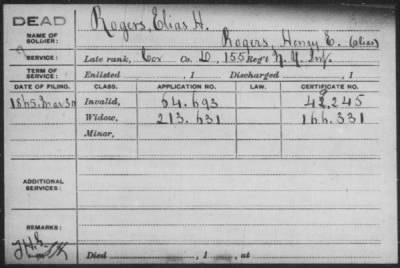 DEAD
NAME OF SOLDIER: Rogers, Elias H.
Rogers, Henry E. (alias)
SERVICE: Late rank, Cor Co. D, 155 Reg't N.Y. Inf.
TERM OF SERVICE: Enlisted , 1 Discharged , 1
DATE OF FILING. CLASS. APPLICATION NO. LAW. CERTIFICATE NO.
1865, Mar 30 Invalid, 64.693 42,245
Widow, 213.631 166.331
Minor,
ADDITIONAL SERVICES:
REMARKS:
Died , 1 , at